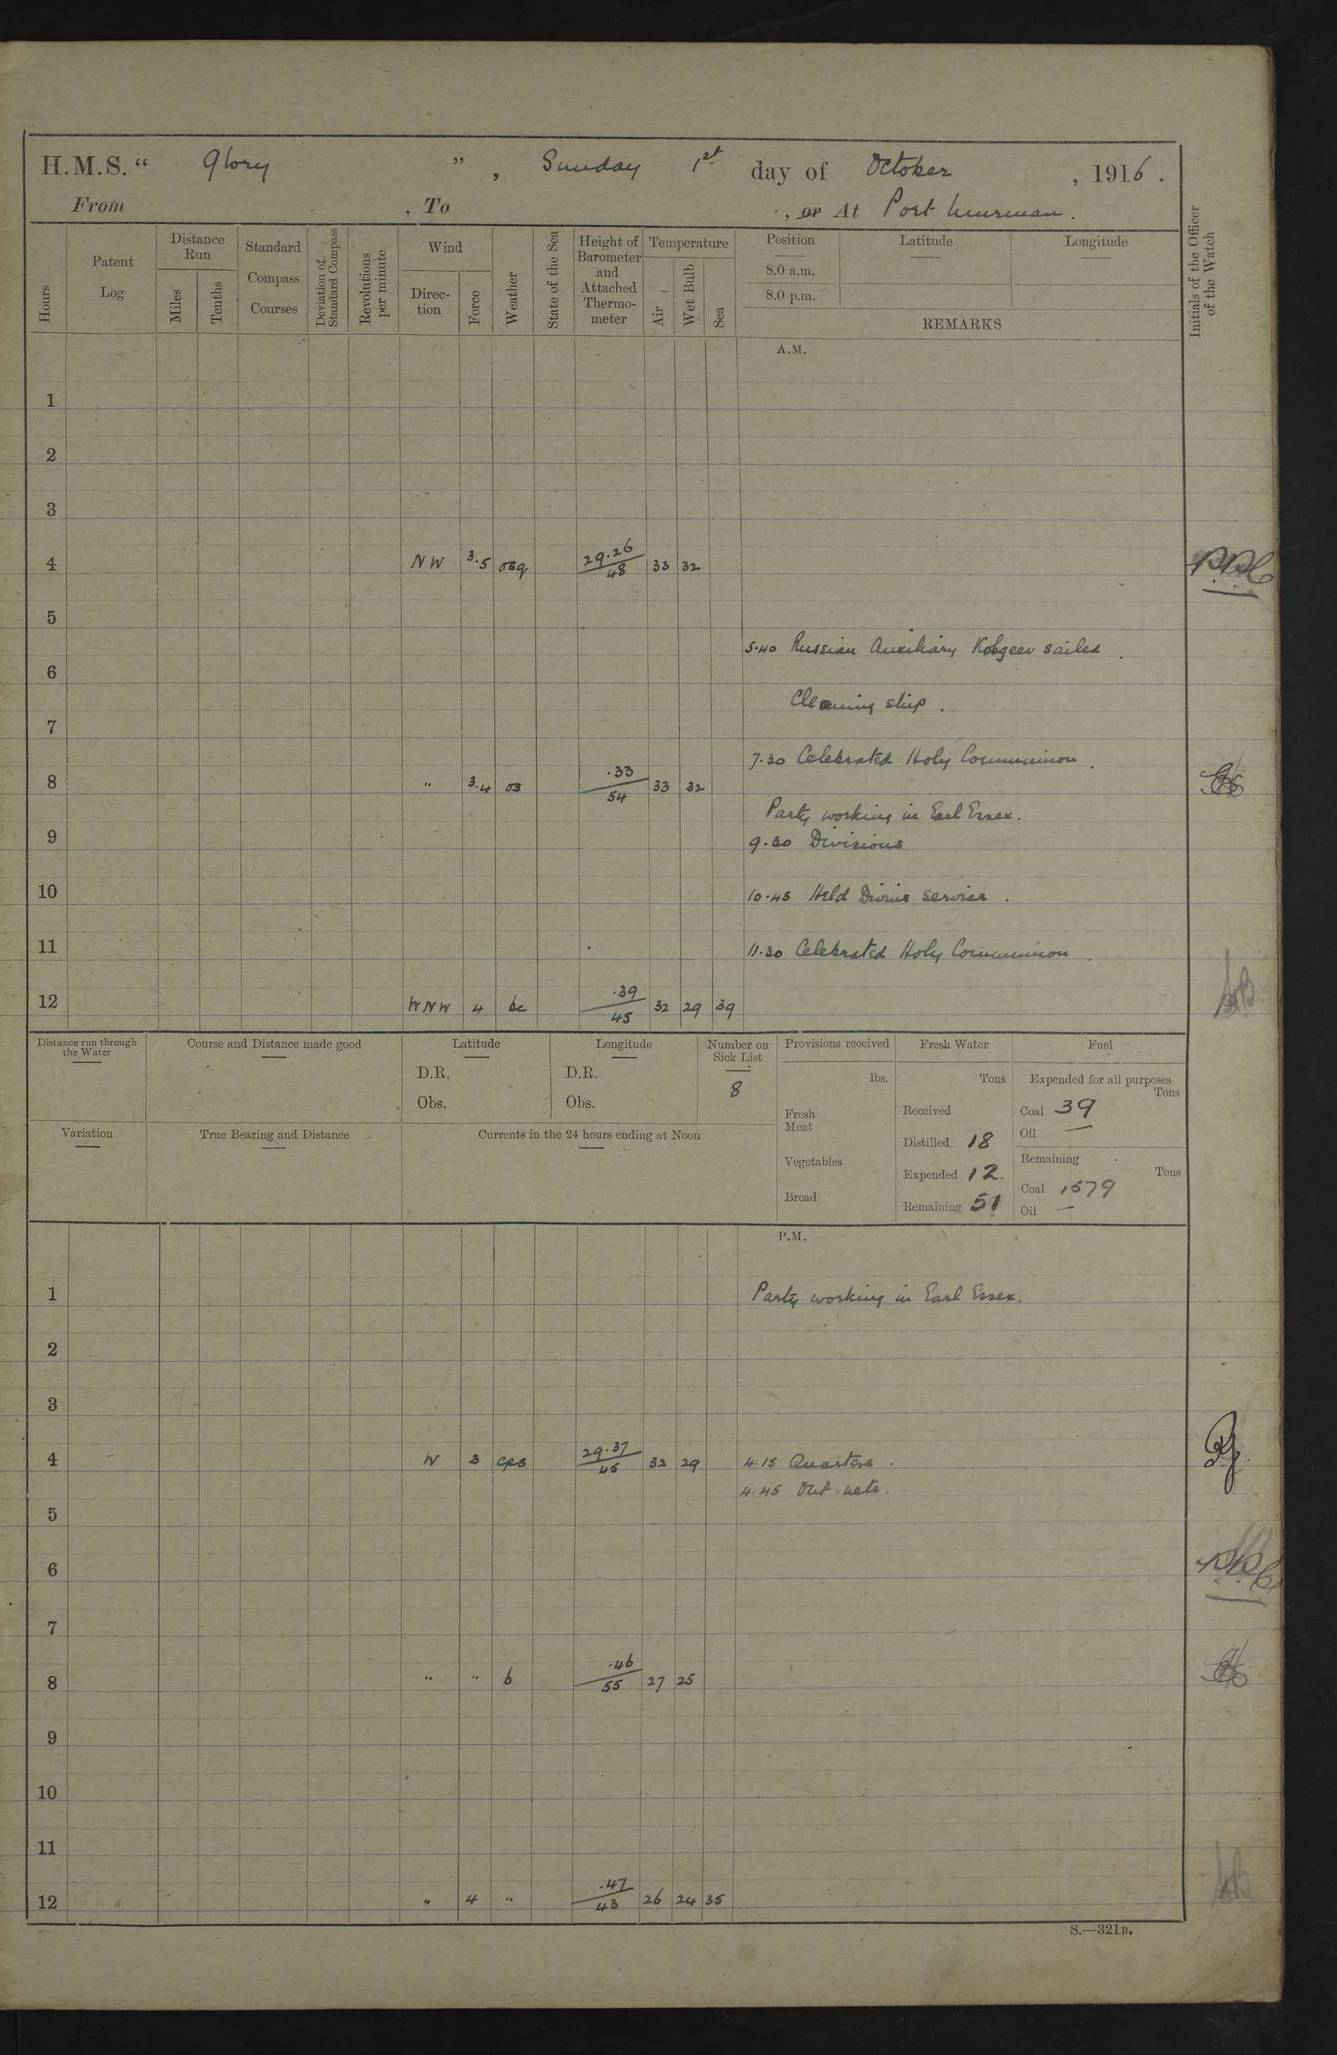 H.M.S. “ Glory ” , Sunday 1st day of October , 1916 .
From , To , or At Port Murman .
Hours
Patent Log
Distance Run
Miles
Tenths
Standard Compass Courses
Deviation of Standard Compass
Revolutions per minute
Wind
Direc-tion
Force
Weather
State of the Sea
Height of Barometer and Attached Thermo-meter
Temperature
Air
Wet Bulb
Sea
Position
8.0 a.m.
8.0 p.m.
Latitude
Longitude
REMARKS
Initials of the Officer of the Watch
A.M.
1
2
3
4 NW 3.5 osq 29.26 48 33 32
5
5.40 Russian Auxiliary sailed .
6
Cleaning ship .
7
7.30 Celebrated Holy Communion .
8 " 3.4 os .33 54 33 32
Party working in Earl Essex .
9
9.30 Divisions
10 10.45 Held Divine service .
11 11.30 Celebrated Holy Communion .
12 WNW 4 bc .39 45 32 29 39
Distance run through the Water
Course and Distance made good
Latitude
D.R.
Obs.
Longitude
D.R.
Obs.
Number on Sick List
8
Provisions received
lbs.
Fresh Meat
Vegetables
Bread
Fresh Water
Tons
Received
Distilled 18
Expended 12.
Remaining 51
Fuel
Expended for all purposes
Tons
Coal 39
Oil —
Remaining
Tons
Coal 1579
Oil —
Variation
True Bearing and Distance
Currents in the 24 hours ending at Noon
P.M.
1 Party working in Earl Essex .
2
3
4 W 3 cps 29.37 45 32 29 4.15 Quarters .
4.45 Out nets .
5
6
7
8 " " b .46 55 27 25
9
10
11
12 " 4 " .47 43 26 24 35
S.—321B.